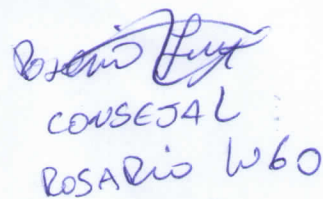 Rosario Lugo
CONSEJAL
ROSARIO LUGO